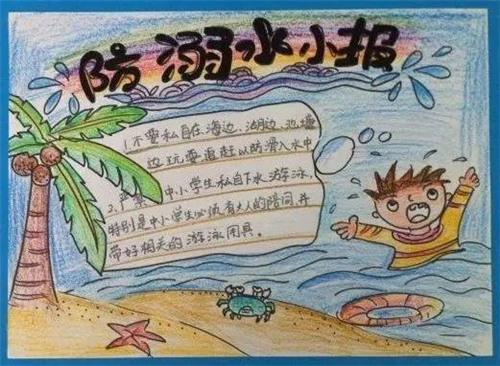 防溺水小报
1.不要私自在海边、湖边、池塘
边玩耍追赶以防滑入水中
2.严禁中小学生私自下水游泳,
特别是中小学生必须有大人的陪同并
带好相关的游泳用具。